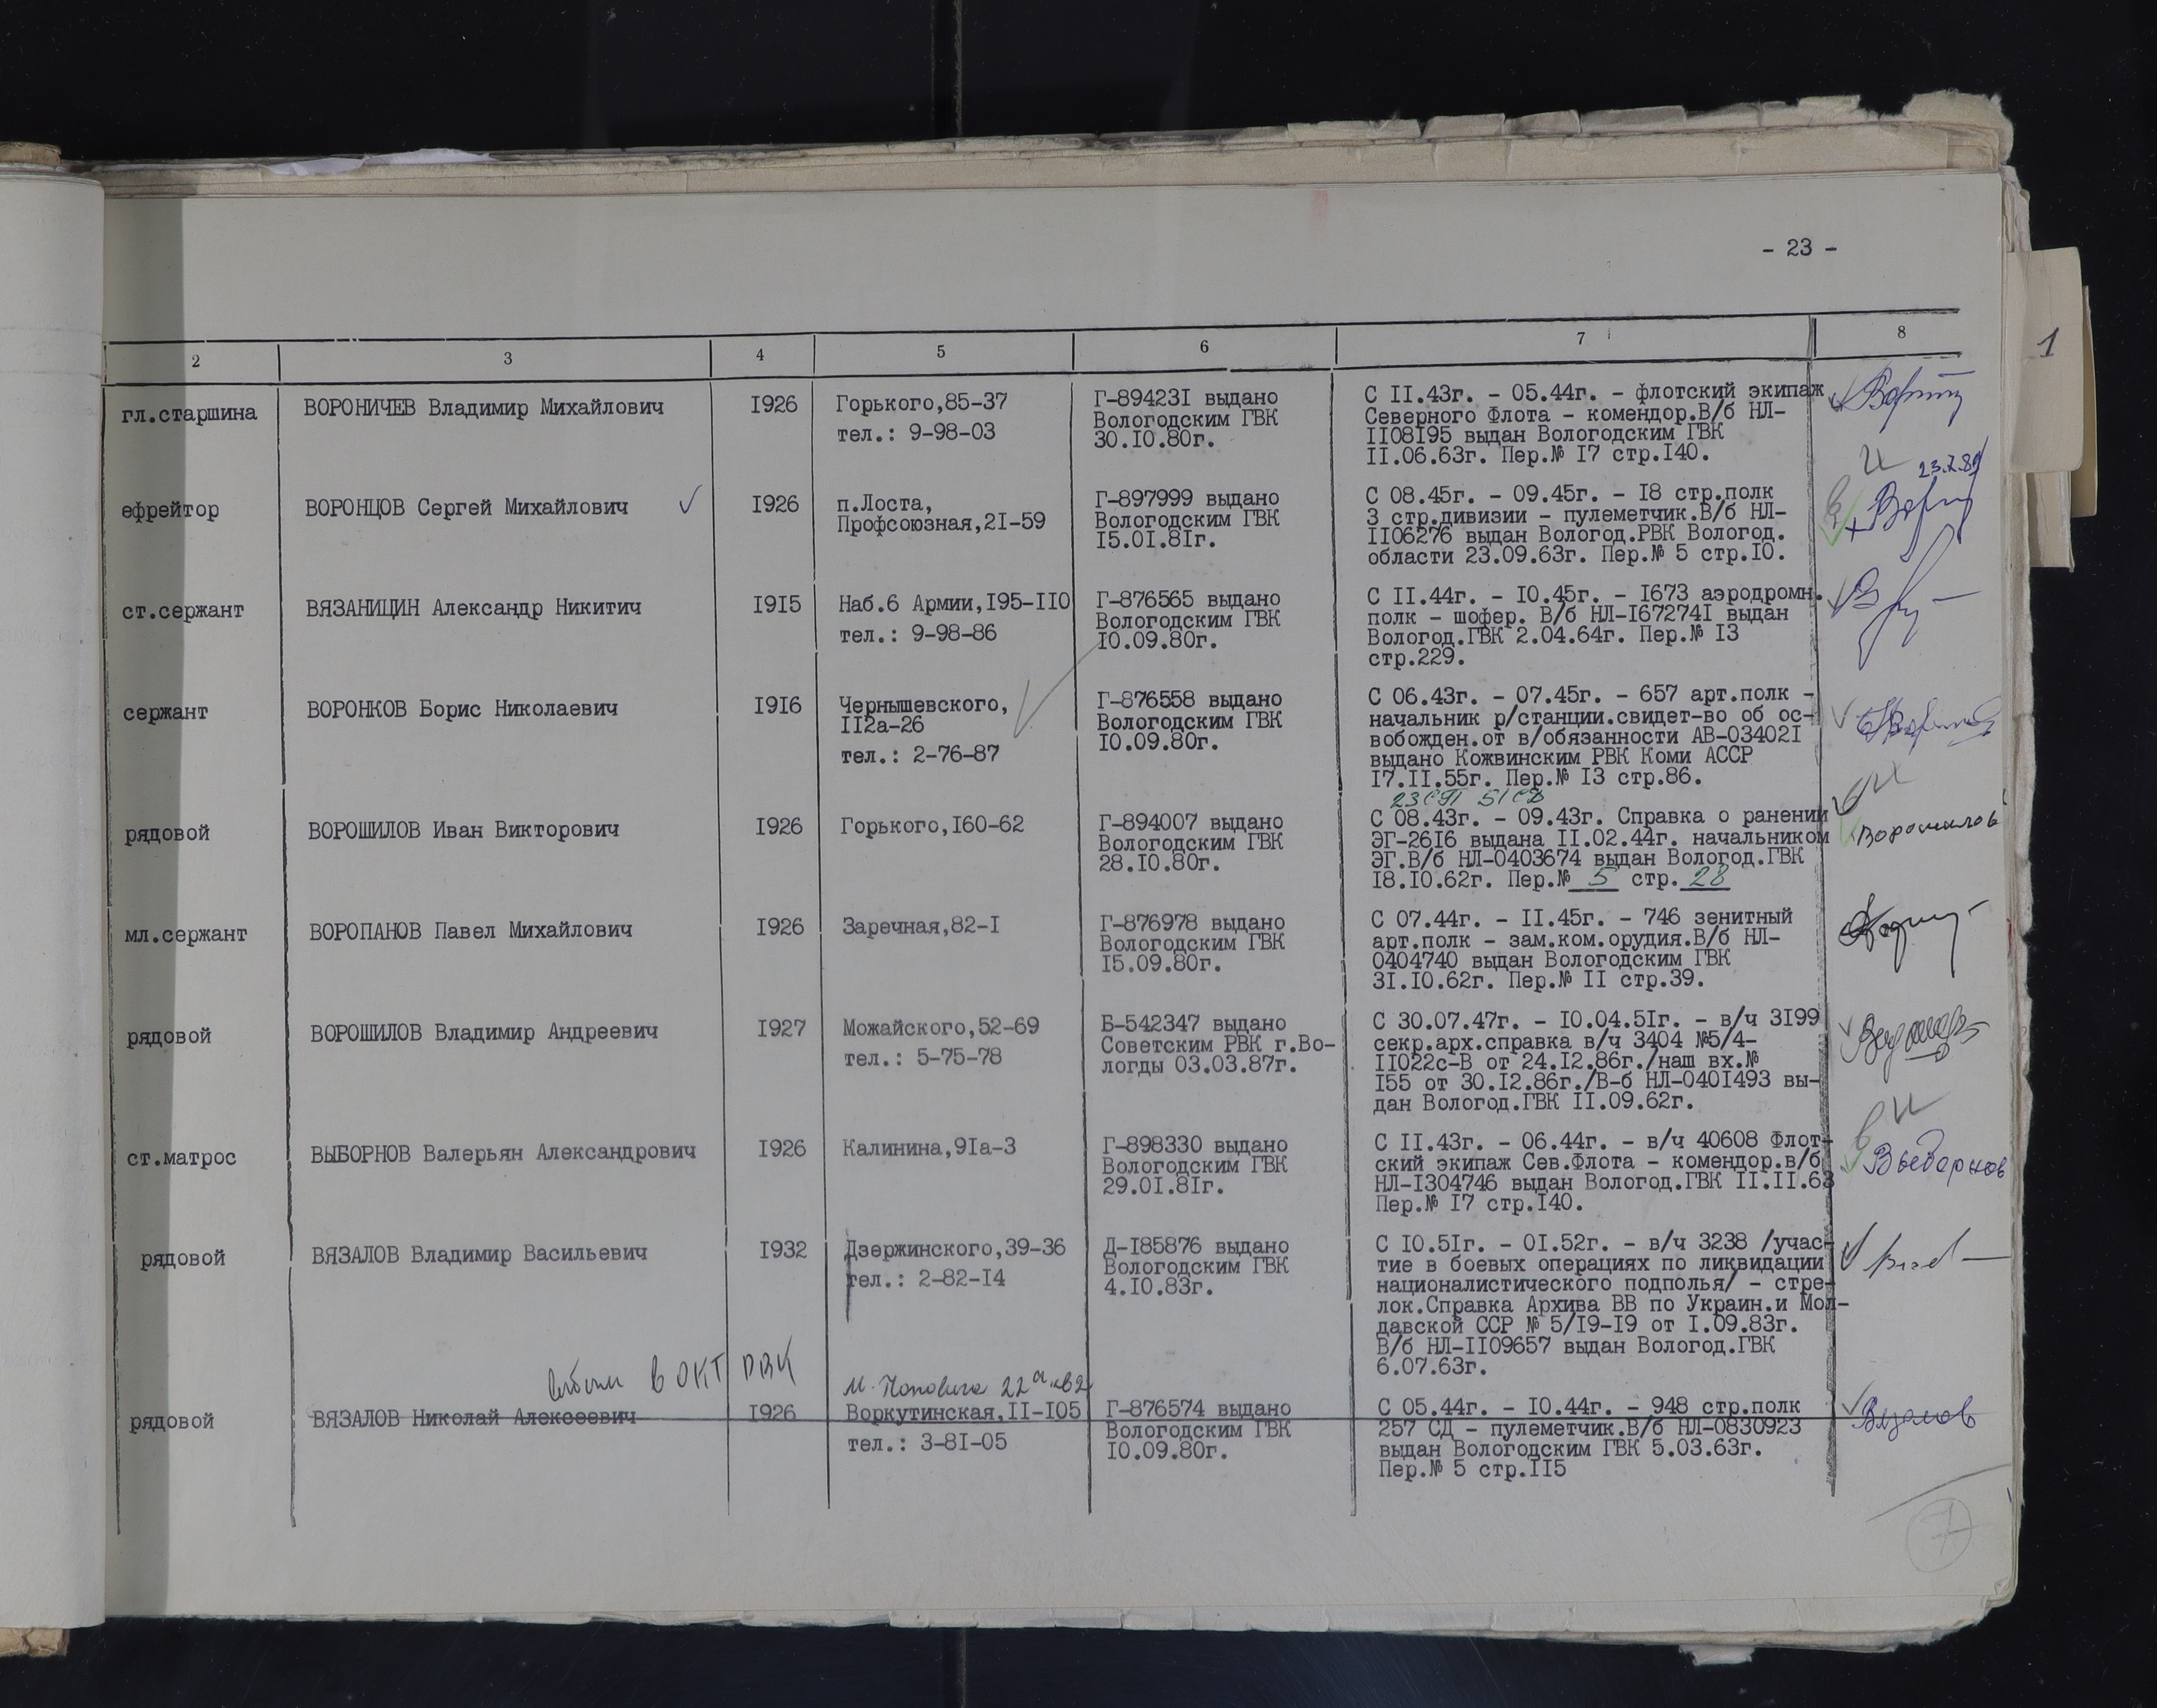 - 23 -
1
2 3 4 5 6 7 8
гл.старшина
ВОРОНИЧЕВ Владимир Михайлович
I926
Горького,85-37
тел.: 9-98-03
Г-89423I выдано
Вологодским ГВК
30.I0.80г.
С II.43г. - 05.44г. - флотский экипаж
Северного Флота - комендор.В/б НЛ-
II08I95 выдан Вологодским ГВК
II.06.63г. Пер.№ I7 стр.I40.
ефрейтор
ВОРОНЦОВ Сергей Михайлович
I926
п.Лоста,
Профсоюзная,2I-59
Г-897999 выдано
Вологодским ГВК
I5.0I.8Iг.
С 08.45г. - 09.45г. - I8 стр.полк
3 стр.дивизии - пулеметчик.В/б НЛ-
II06276 выдан Вологод.РВК Вологод.
области 23.09.63г. Пер.№ 5 стр.I0.
ст.сержант
ВЯЗАНИЦИН Александр Никитич
I9I5
Наб.6 Армии,I95-II0
тел.: 9-98-86
Г-876565 выдано
Вологодским ГВК
I0.09.80г.
С II.44г. - I0.45г. - I673 аэродромн.
полк - шофер. В/б НЛ-I67274I выдан
Вологод.ГВК 2.04.64г. Пер.№ I3
стр.229.
сержант
ВОРОНКОВ Борис Николаевич
I9I6
Чернышевского,
II2а-26
тел.: 2-76-87
Г-876558 выдано
Вологодским ГВК
I0.09.80г.
С 06.43г. - 07.45г. - 657 арт.полк -
начальник р/станции.свидет-во об ос-
вобожден.от в/обязанности АВ-03402I
выдано Кожвинским РВК Коми АССР
I7.II.55г. Пер.№ I3 стр.86.
23 СП 51 СД
рядовой
ВОРОШИЛОВ Иван Викторович
I926
Горького,I60-62
Г-894007 выдано
Вологодским ГВК
28.I0.80г.
С 08.43г. - 09.43г. Справка о ранении
ЭГ-26I6 выдана II.02.44г. начальником
ЭГ.В/б НЛ-0403674 выдан Вологод.ГВК
I8.I0.62г. Пер.№ 5 стр. 28
Ворошилов
мл.сержант
ВОРОПАНОВ Павел Михайлович
I926
Заречная,82-I
Г-876978 выдано
Вологодским ГВК
I5.09.80г.
С 07.44г. - II.45г. - 746 зенитный
арт.полк - зам.ком.орудия.В/б НЛ-
0404740 выдан Вологодским ГВК
3I.I0.62г. Пер.№ II стр.39.
рядовой
ВОРОШИЛОВ Владимир Андреевич
I927
Можайского,52-69
тел.: 5-75-78
Б-542347 выдано
Советским РВК г.Во-
логды 03.03.87г.
С 30.07.47г. - I0.04.5Iг. - в/ч 3I99
секр.арх.справка в/ч 3404 №5/4-
II022с-В от 24.I2.86г./наш вх.№
I55 от 30.I2.86г./В-б НЛ-040I493 вы-
дан Вологод.ГВК II.09.62г.
ст.матрос
ВЫБОРНОВ Валерьян Александрович
I926
Калинина,9Iа-3
Г-898330 выдано
Вологодским ГВК
29.0I.8Iг.
С II.43г. - 06.44г. - в/ч 40608 Флот-
ский экипаж Сев.Флота - комендор.в/б
НЛ-I304746 выдан Вологод.ГВК II.II.63
Пер.№ I7 стр.I40.
Выборнов
рядовой
ВЯЗАЛОВ Владимир Васильевич
I932
Дзержинского,39-36
тел.: 2-82-I4
Д-I85876 выдано
Вологодским ГВК
4.I0.83г.
С I0.5Iг. - 0I.52г. - в/ч 3238 /учас-
тие в боевых операциях по ликвидации
националистического подполья/ - стре-
лок.Справка Архива ВВ по Украин.и Мол-
давской ССР № 5/I9-I9 от I.09.83г.
В/б НЛ-II09657 выдан Вологод.ГВК
6.07.63г.
в ОКТ РВК
рядовой
ВЯЗАЛОВ Николай Алексеевич
I926
Воркутинская,II-I05
тел.: 3-8I-05
Г-876574 выдано
Вологодским ГВК
I0.09.80г.
С 05.44г. - I0.44г. - 948 стр.полк
257 СД - пулеметчик.В/б НЛ-0830923
выдан Вологодским ГВК 5.03.63г.
Пер.№ 5 стр.II5
Вязалов
7